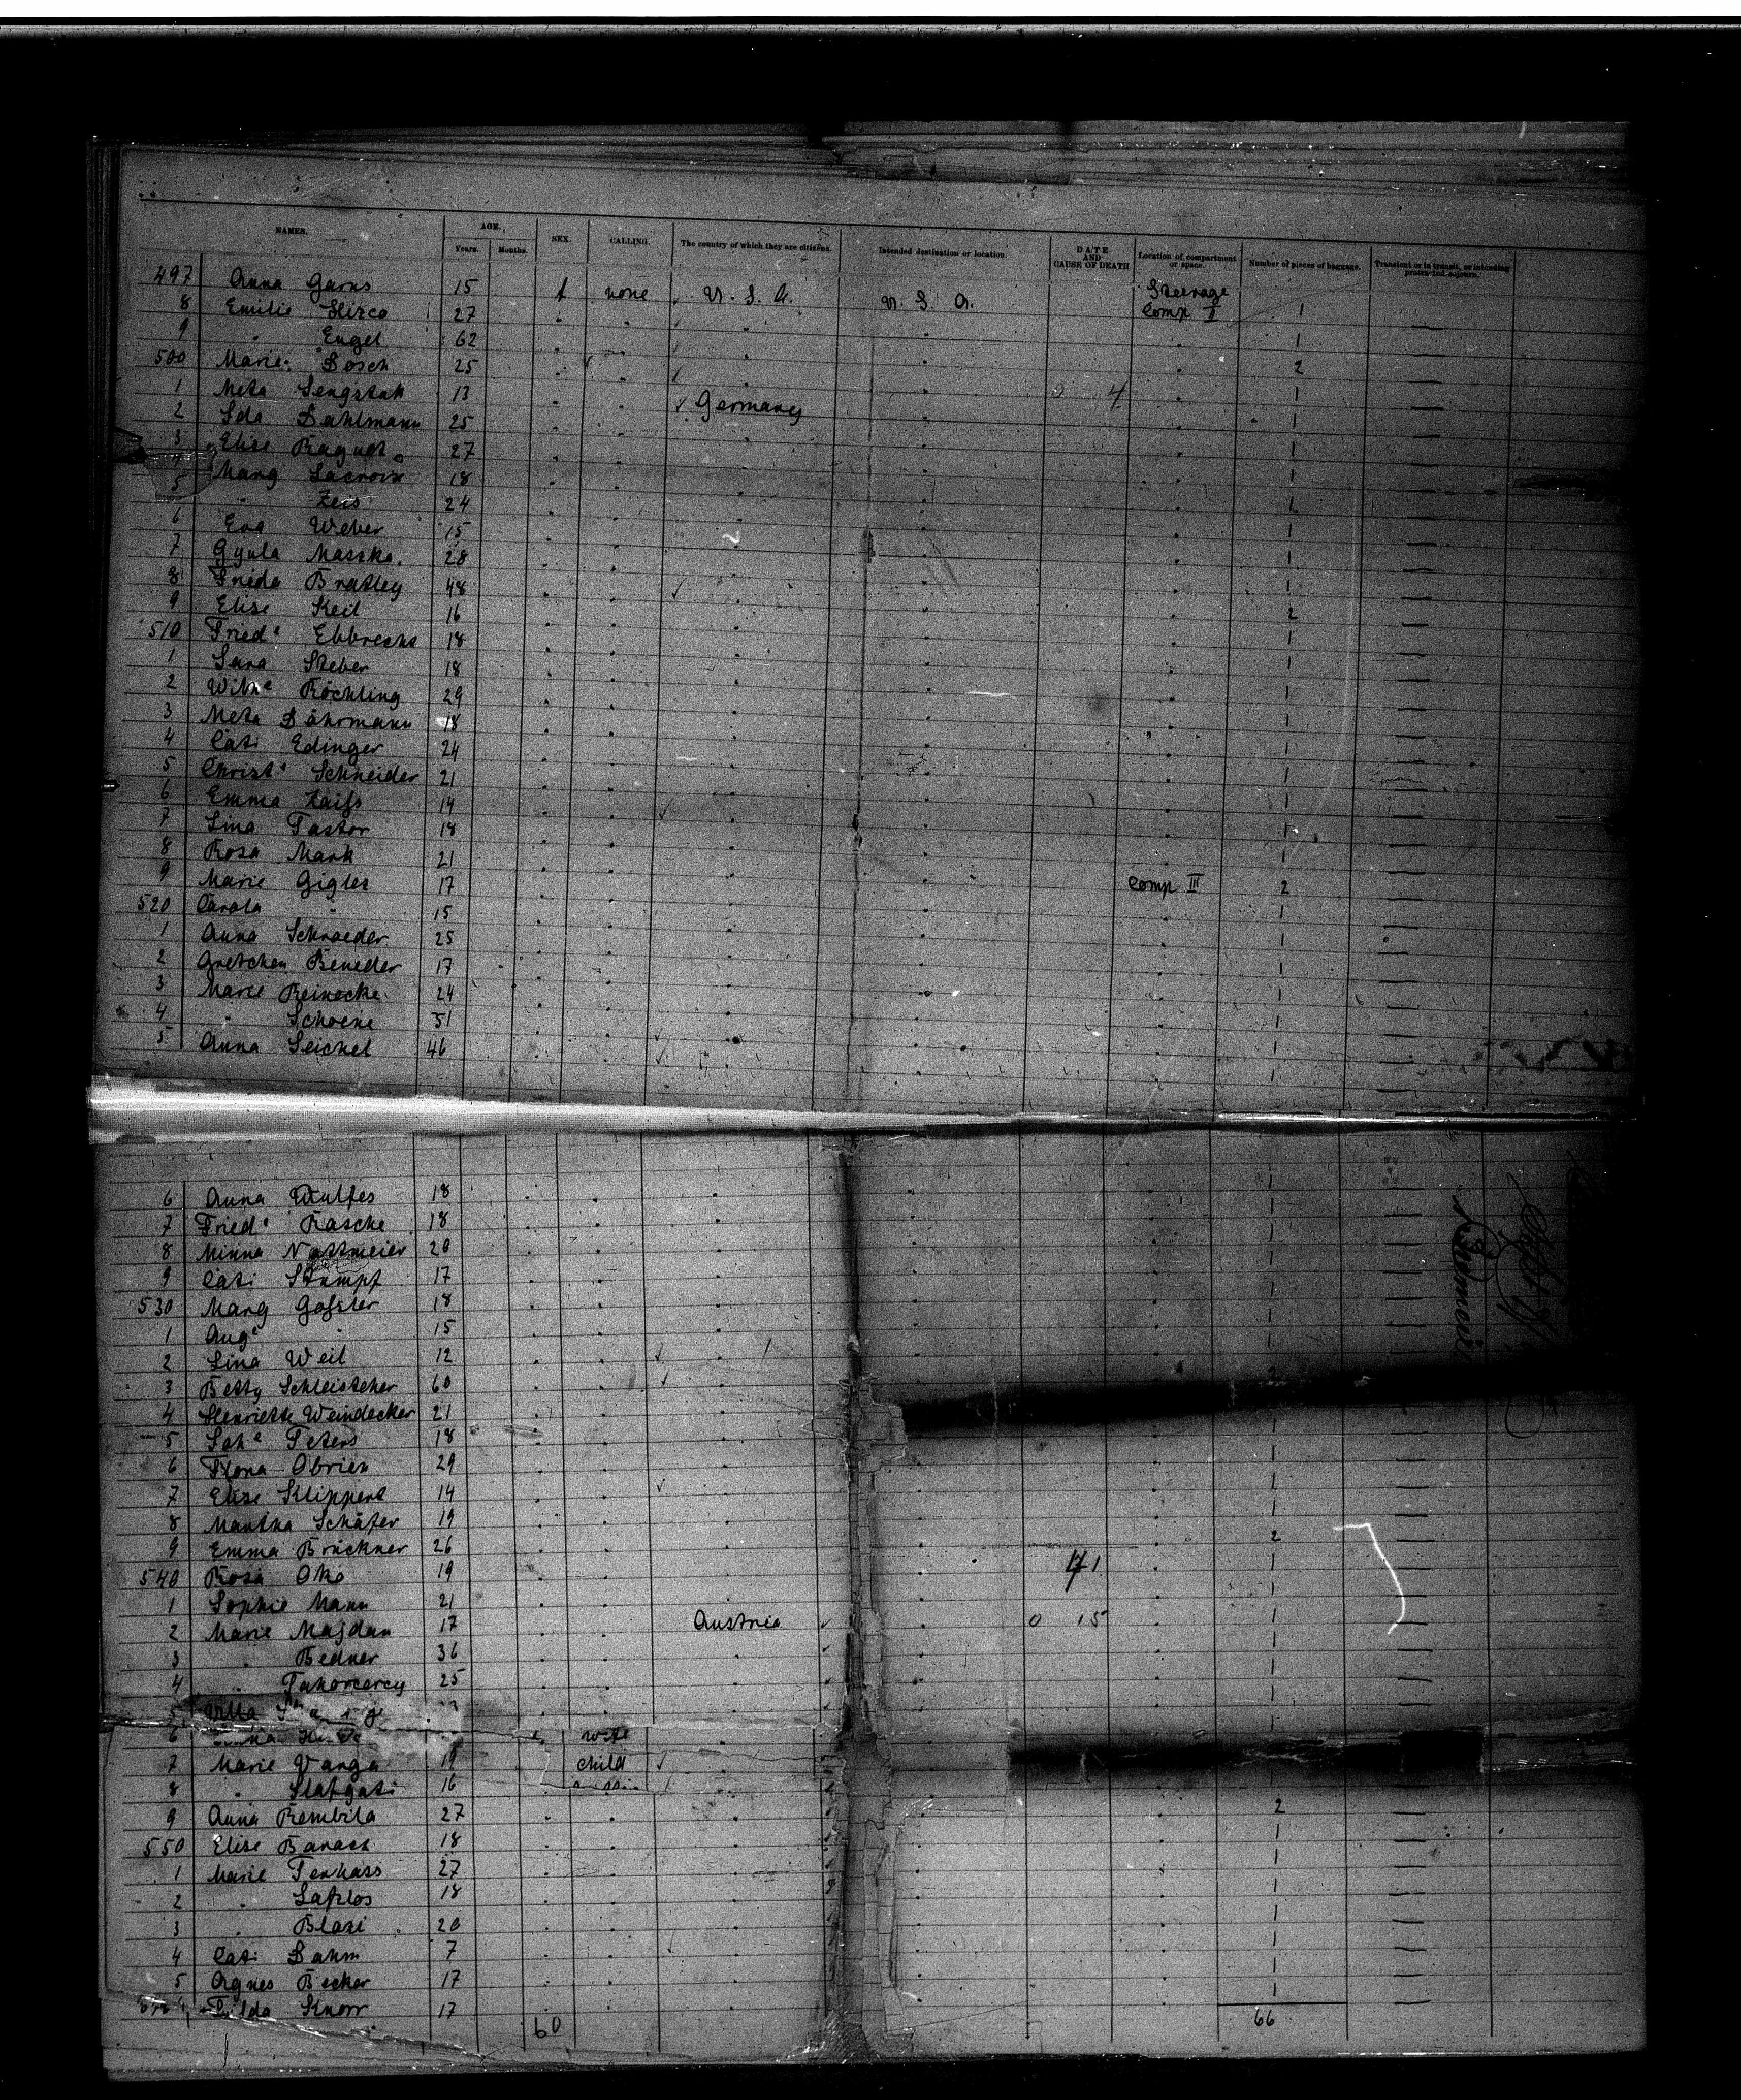 NAMES. AGE. SEX. CALLING. The country of which they are citizens. Intended destination or location. DATE AND CAUSE OF DEATH Location of compartment or space. Number of pieces of baggage. Transient or in transit, or intending protracted sojourn.
Years. Months.
497 Anna Garns 15 f none U. S. A. U. S. A. Steerage
8 Emilie 27 Comp II 1
9 " Engel 62 1
500 Marie Dosch 25 2
1 Meta Sengstak 13 Germany 4 1
2 Ida Dahlmann 25 1
3 Elise Ragnet 27 1
4 Marg Lacroix 18 1
5 " Zeis 24 1
6 Eva Weber 15 1
7 Gyula Maszka 28 1
8 Frieda Bratley 48 1
9 Elise Keil 16 2
510 Fried e Ebbrecht 18 1
1 Sara Steber 18 1
2 Wilh e Röchling 29 1
3 Meta Dährmann 18 1
4 Cati Edinger 24 1
5 Christ e Schneider 21 1
6 Emma Zaiss 14 1
7 Lina Pastor 18 1
8 Rosa Mark 21 1
9 Marie Gigler 17 Comp III 2
520 Carola " 15 1
1 Anna Schroeder 25 1
2 Gretchen Beneder 17 1
3 Marie Reinecke 24 1
4 " Schoene 51 1
5 Anna Seichel 46 1
6 Anna Wulfes 18 1
7 Fried e Rasche 18 1
8 Minna Nottmeier 20 1
9 Cati Stumpf 17 1
530 Marg Gossler 18 1
1 Aug e " 15 1
2 Lina Weil 12 1
3 Betty Schleistcher 60
4 Henriette Weindecker 21 1
5 Joh e Peters 18 1
6 Obrien 29 1
7 Elise Klippert 14 1
8 Martha Schäfer 19 1
9 Emma Brückner 26 2
540 Rosa Oko 19 41 1
1 Sophie Mann 21 1
2 Marie Majdan 17 Austria 0 15 1
3 " Bedner 36 1
4 " 25 1
5
6 wife
7 Marie Varga 19 child
8 " 16
9 Anna Rembila 27 2
550 Elise Banach 18 1
1 Marie Tenkass 27 1
2 " 18 1
3 " Blazi 20 1
4 Cati Dahm 7 1
5 Agnes Becker 17 1
Tilda Knorr 17
60 66